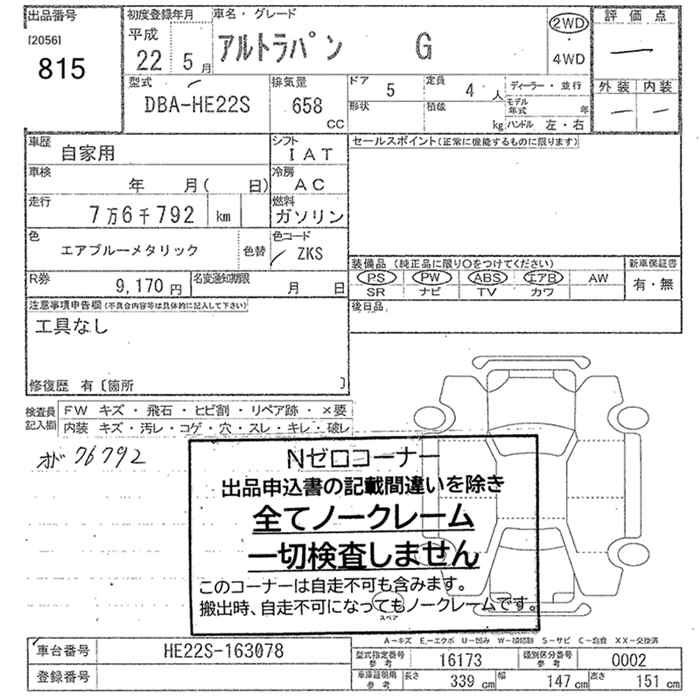 出品番号 初度登録年月 車名・グレード 2WD 評価点
[2056] 平成 アルトラパン G ―
815 22 5月 4WD
型式 排気量 ドア 5 定員 4人 ディーラー・並行 外装 内装
DBA-HE22S 658 CC 形状 積載 kg モデル年式 年 ― ―
ハンドル 左・右
車歴 自家用 シフト IAT セールスポイント(正常に機能するものに限ります)
車検 年 月( 日) 冷房 AC
走行 7万6千792 km 燃料 ガソリン
色 エアブルーメタリック 色替 色コード ZKS
装備品(純正品に限り○をつけてください) 新車保証書
PS PW ABS エアB AW 有・無
SR ナビ TV カワ
R券 9,170円 名変通知期限 月 日
後日品
注意事項申告欄(不具合内容等は具体的に記入して下さい)
工具なし
修復歴 有〔箇所 〕
検査員記入欄 FW キズ・飛石・ヒビ割・リペア跡・×要
内装 キズ・汚レ・コゲ・穴・スレ・キレ・破レ
オド 76792
Nゼロコーナー
出品申込書の記載間違いを除き
全てノークレーム
一切検査しません
このコーナーは自走不可も含みます。
搬出時、自走不可になってもノークレームです。
スペア
A-キズ E-エクボ U-凹み W-補修跡 S-サビ C-腐食 XX-交換済
車台番号 HE22S-163078 型式指定番号 参考 16173 類別区分番号 参考 0002
登録番号 車庫証明用 参考 長さ 339cm 幅 147cm 高さ 151cm